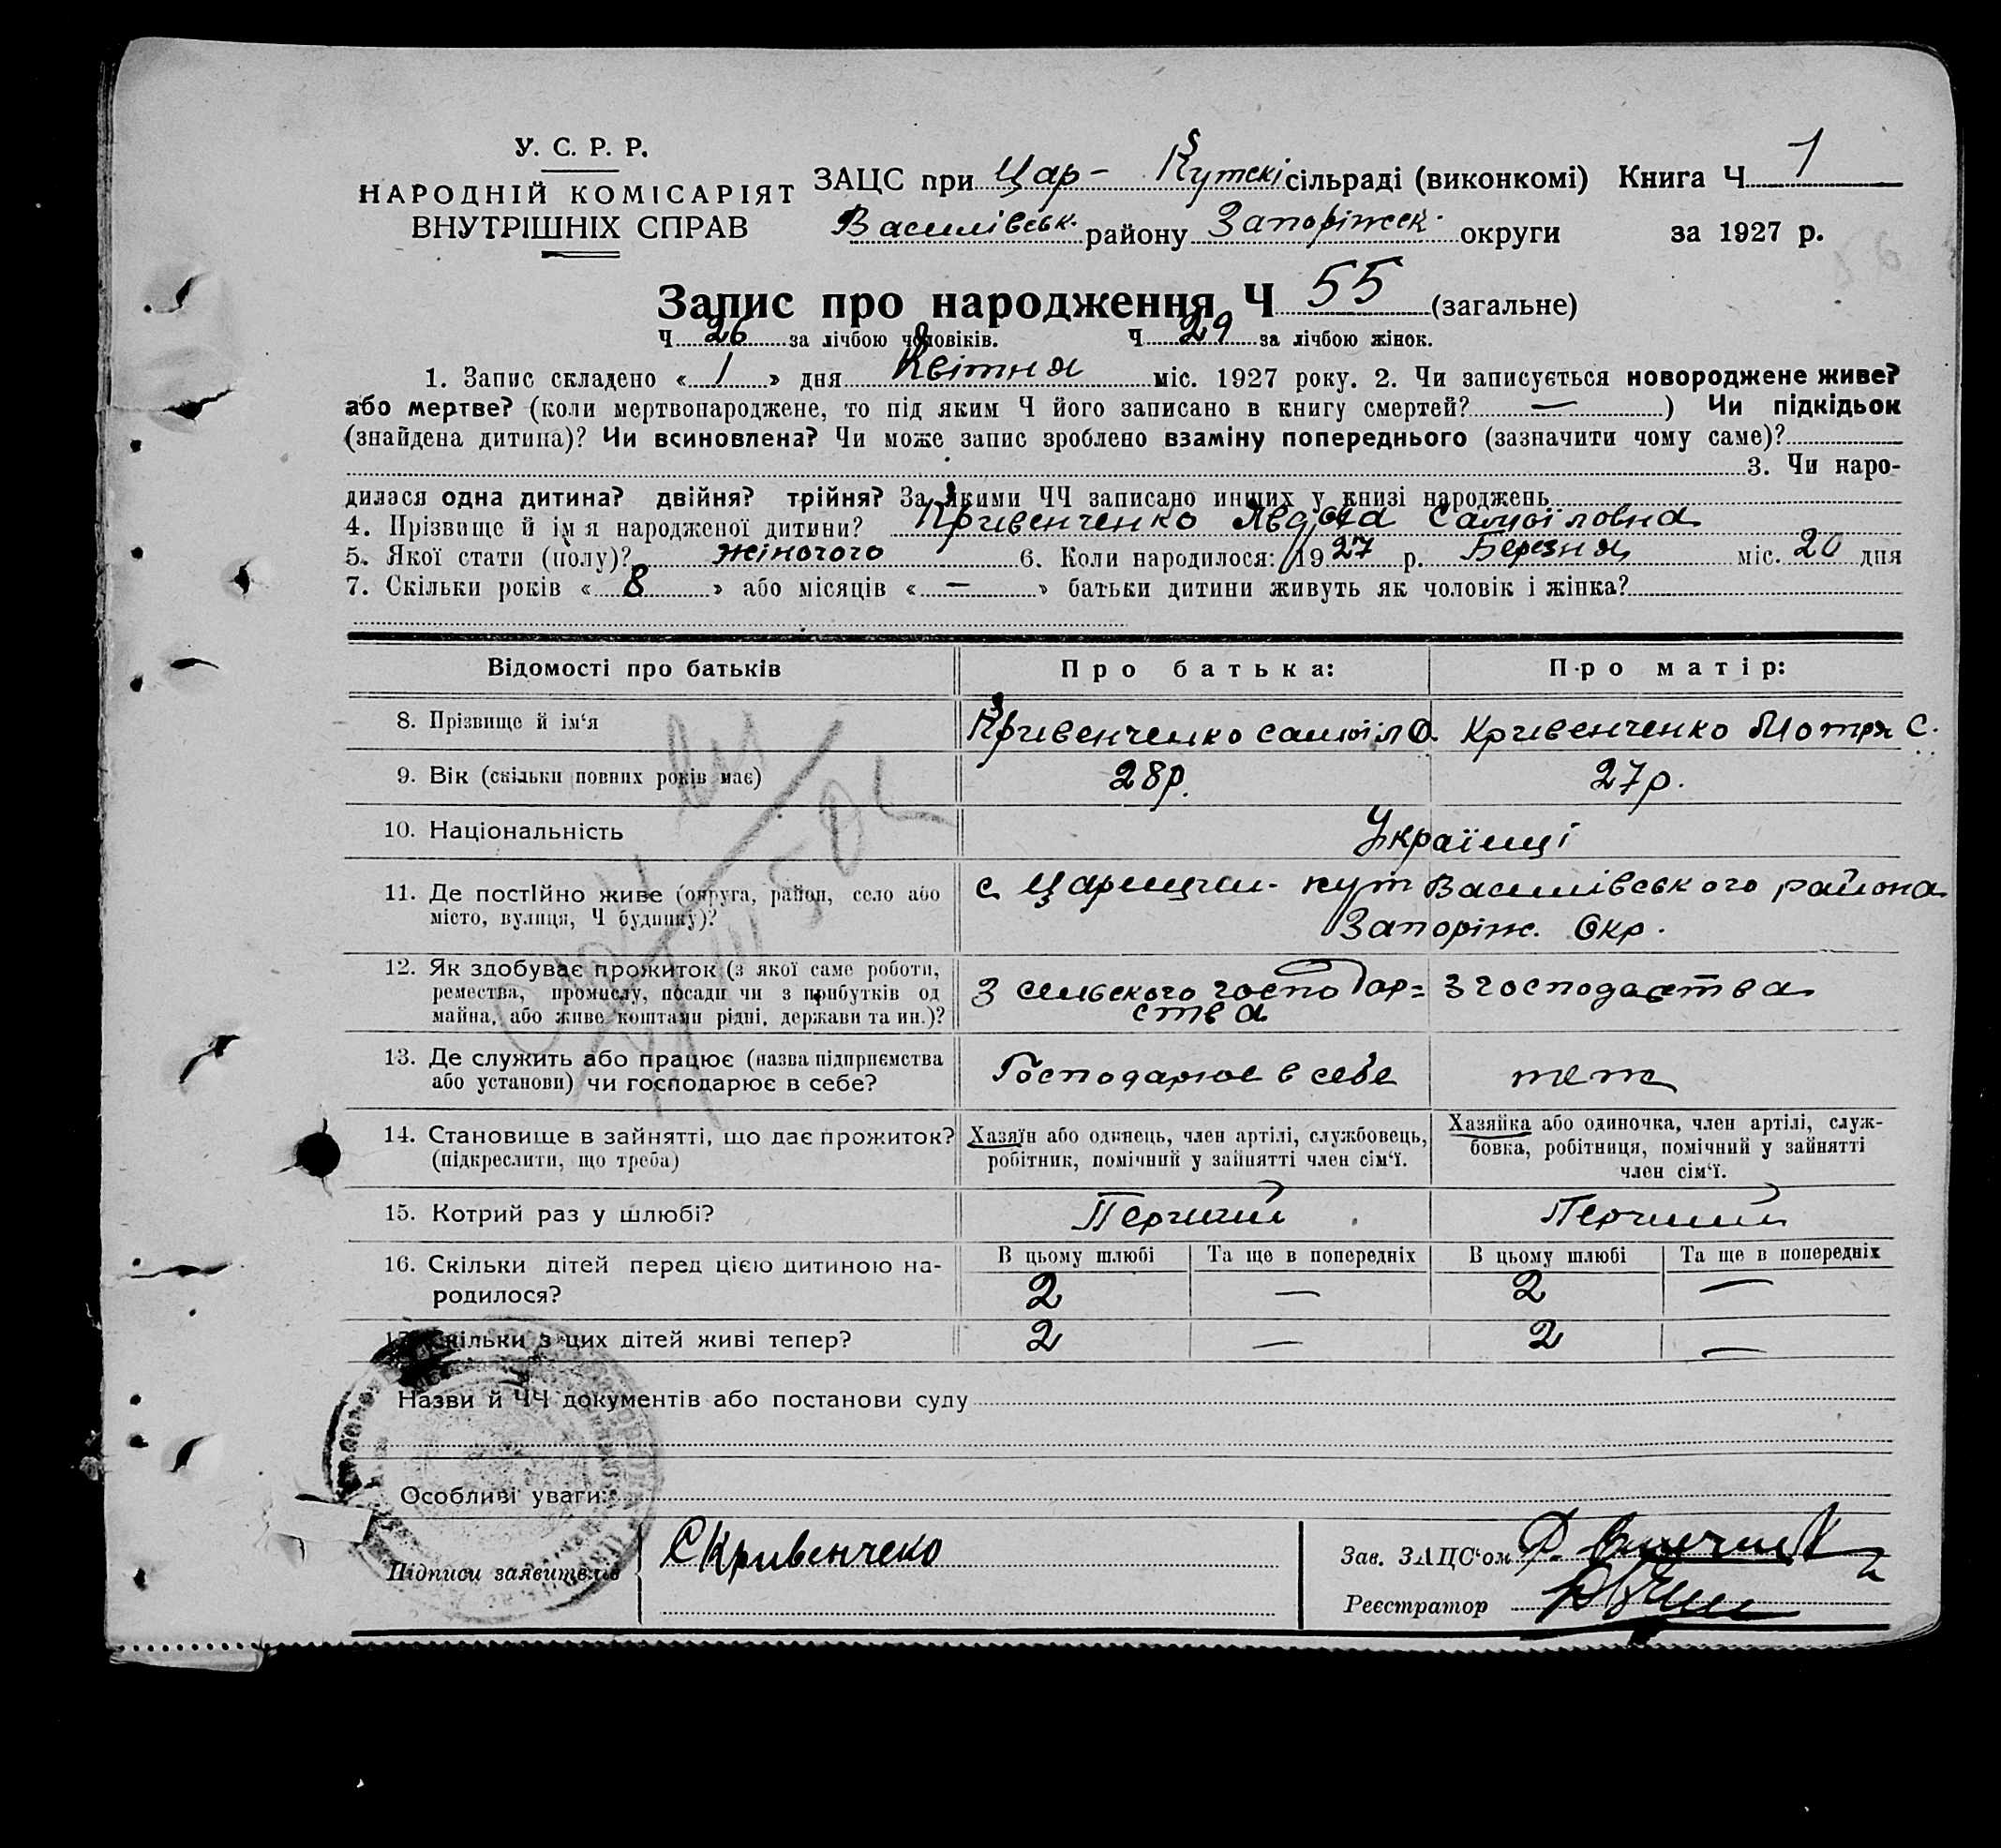 У. С. Р. Р.
НАРОДНІЙ КОМІСАРІЯТ
ВНУТРІШНІХ СПРАВ
ЗАЦС при Цар- Кутскі сільраді (виконкомі) Книга Ч 1
Василівськ. району Запоріжск. округи за 1927 р.
Запис про народження Ч 55 (загальне)
Ч 26 за лічбою чоловіків. Ч 29 за лічбою жінок.
1. Запис складено « 1 » дня Квітня міс. 1927 року. 2. Чи записується новороджене живе?
або мертве? (коли мертвонароджене, то під яким Ч його записано в книгу смертей? — ) Чи підкідьок
(знайдена дитина)? Чи всиновлена? Чи може запис зроблено взаміну попереднього (зазначити чому саме)?
3. Чи наро-
дилася одна дитина? двійня? трійня? За якими ЧЧ записано инших у книзі народжень
4. Прізвище й ім я народженої дитини? Кривенченко Явдоха Самоіловна
5. Якої стати (полу)? жіночого 6. Коли народилося: 1927 р. Березня міс. 20 дня
7. Скільки років « 8 » або місяців « — » батьки дитини живуть як чоловік і жінка?
Відомості про батьків Про батька: Про матір:
8. Прізвище й ім‘я Кривенченко Самоіл О. Кривенченко Мотря С.
9. Вік (скільки повних років має) 28р. 27р.
10. Національність Українці
11. Де постійно живе (округа, район, село або с Царицин- кут Василівського района
місто, вулиця, Ч будинку)? Запоріж. Окр.
12. Як здобуває прожиток (з якої саме роботи,
ремества, промислу, посади чи з прибутків од З сельского господар= З господарства
майна, або живе коштами рідні, держави та ин.)? ства
13. Де служить або працює (назва підприємства
або установи) чи господарює в себе? Господарює в себе теж
14. Становище в зайнятті, що дає прожиток? Хазяїн або одинець, член артілі, службовець, Хазяйка або одиночка, член артілі, служ-
(підкреслити, що треба) робітник, помічний у зайнятті член сім‘ї. бовка, робітниця, помічний у зайнятті
член сім‘ї.
15. Котрий раз у шлюбі? Перший Перший
16. Скільки дітей перед цією дитиною на- В цьому шлюбі Та ще в попередніх В цьому шлюбі Та ще в попередніх
родилося? 2 — 2 —
17. Скільки з цих дітей живі тепер? 2 — 2 —
Назви й ЧЧ документів або постанови суду
Особливі уваги:
Підписи заявителів С Кривенчеко
Зав. ЗАЦС‘ом
Реєстратор